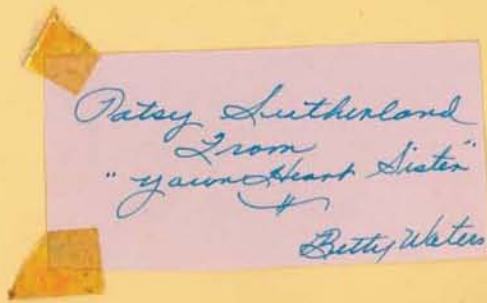 Patsy Sutherland
From
"your Heart Sister"
Betty Waters